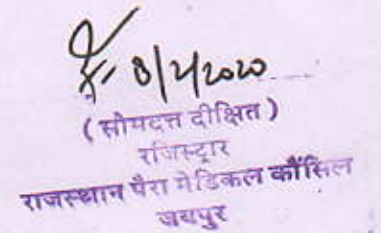 8/2/2020
(सोमदत्त दीक्षित)
रजिस्ट्रार
राजस्थान पैरा मेडिकल कौंसिल
जयपुर